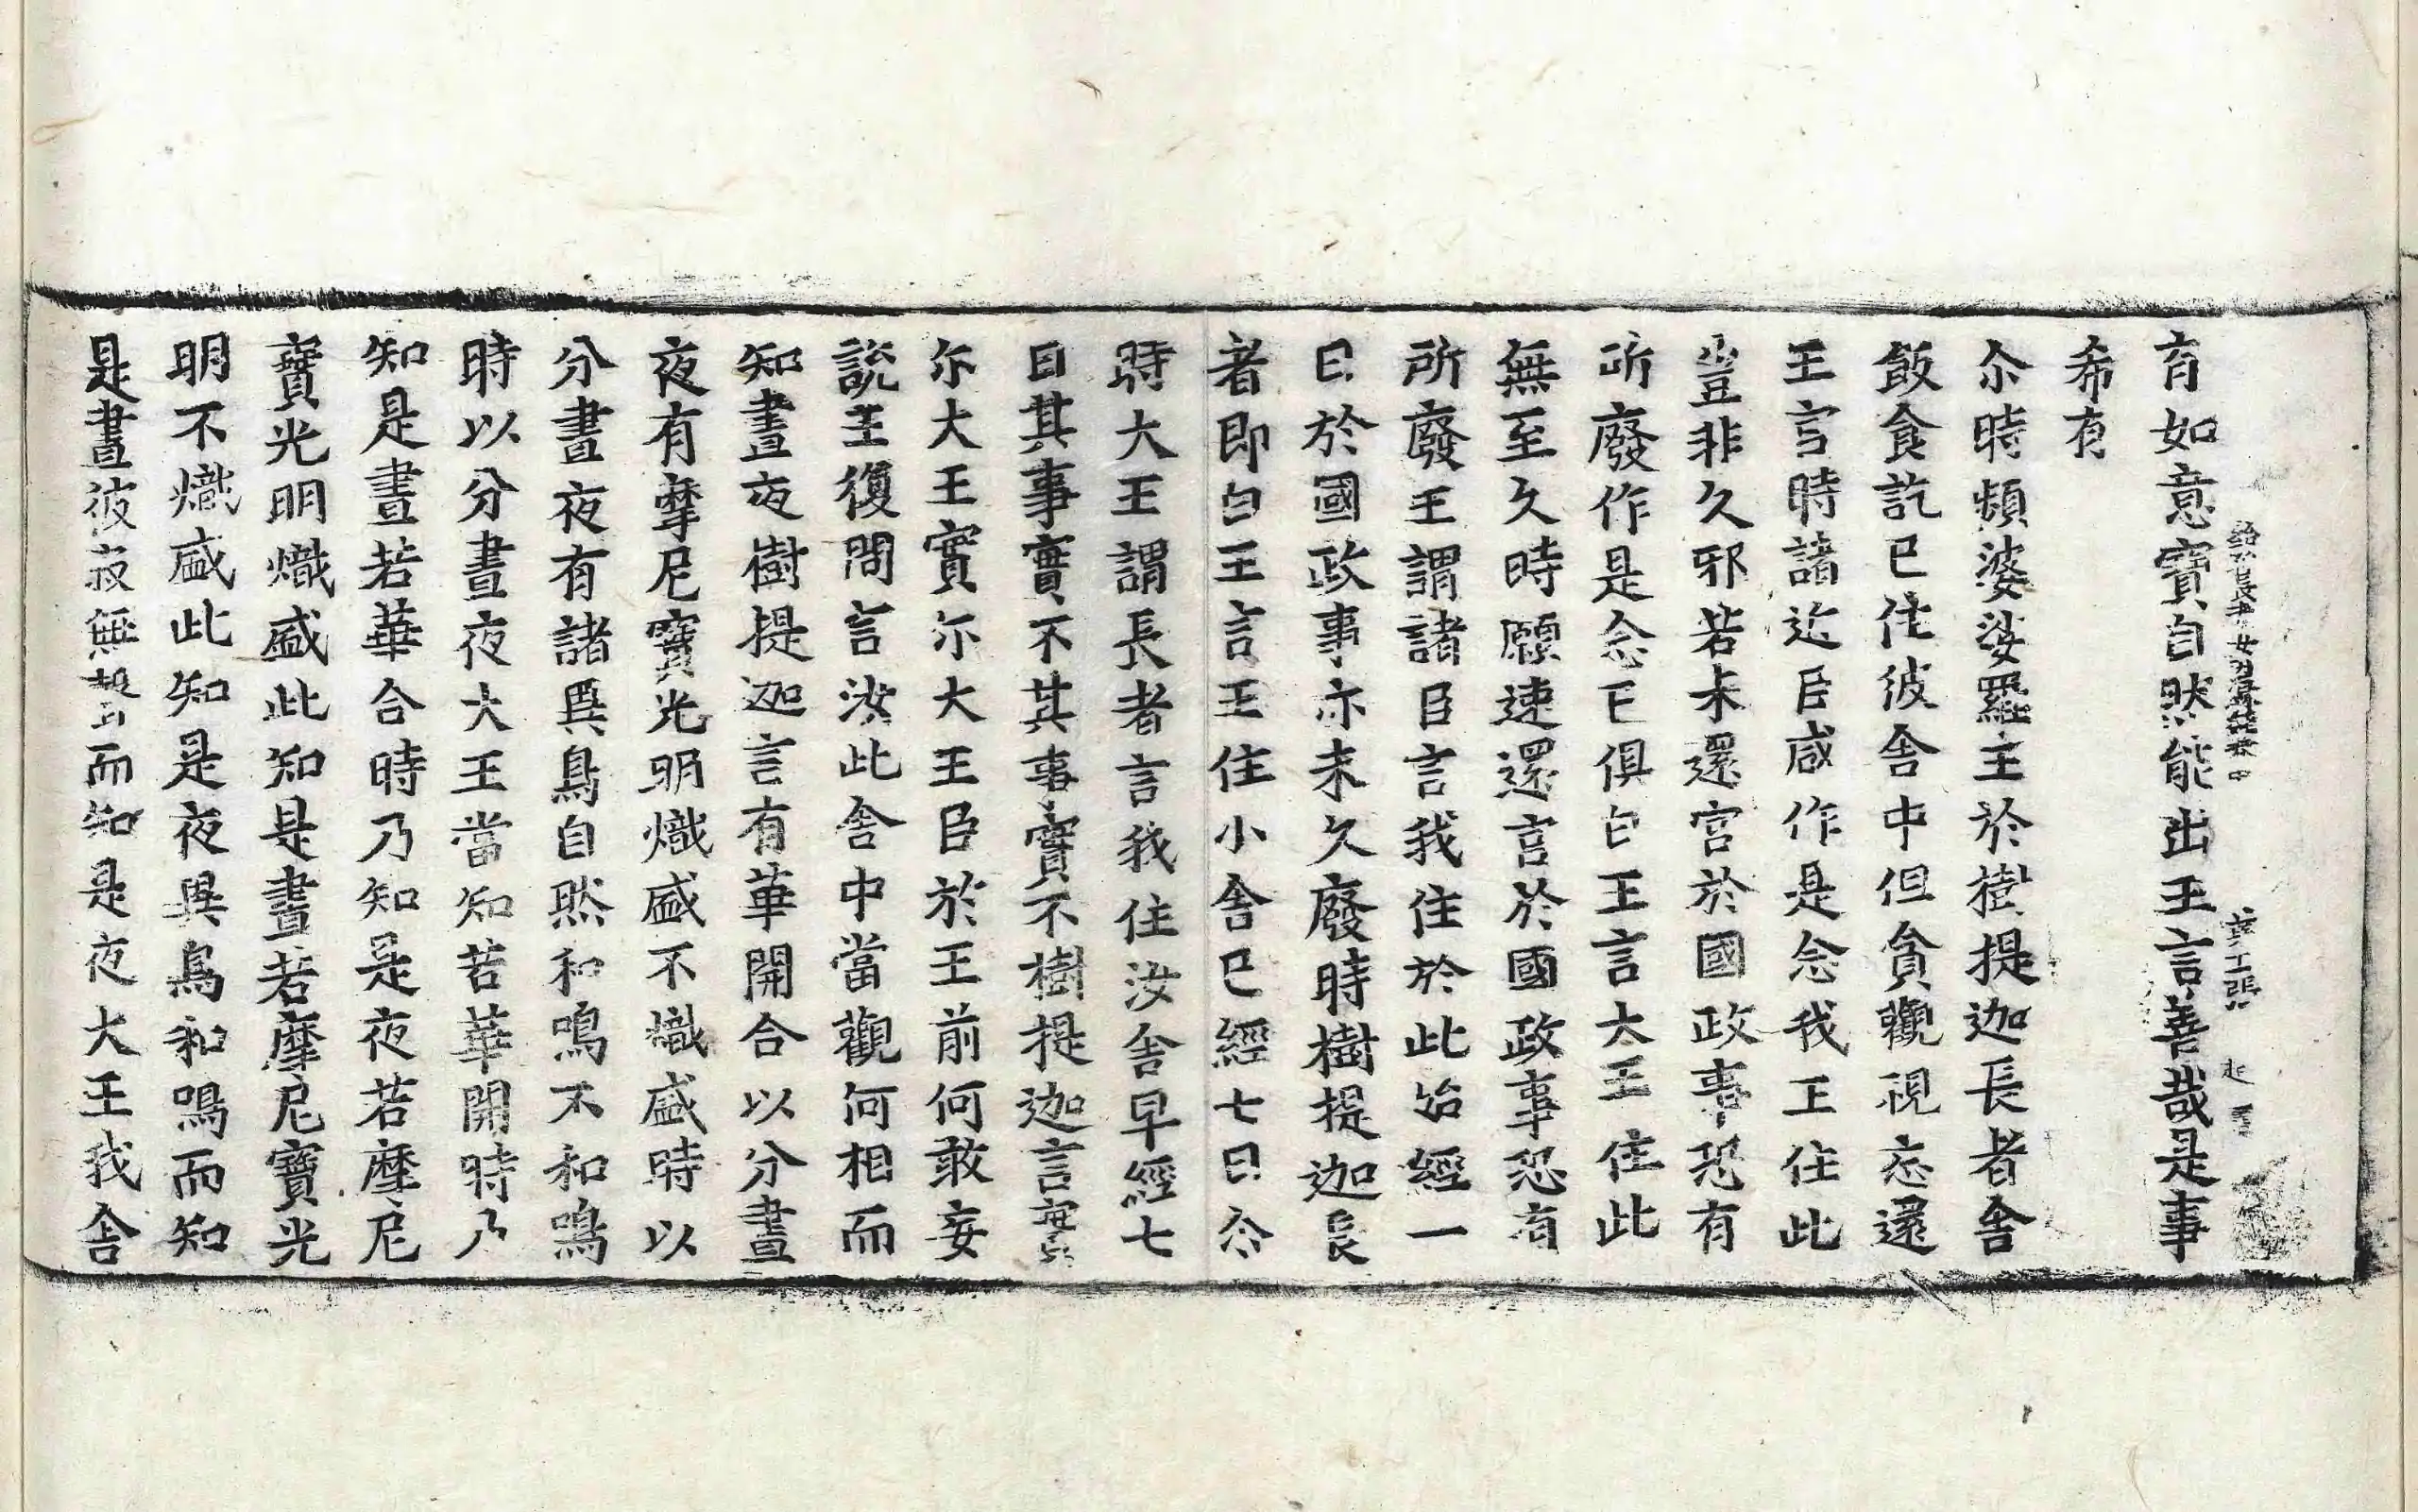 有如意寶自然能出王言善哉是事
希有
尒時頻婆娑羅王於樹提迦長者舍
飯食訖已住彼舍中但貪觀視忘還
王宮時諸近臣咸作是念我王住此
豈非久邪若未還宮於國政事恐有
所廢作是念已俱白王言大王住此
無至久時願速還宮於國政事恐有
所廢王謂諸臣言我住於此始經一
日於國政事亦未久廢時樹提迦長
者即白王言王住小舍已經七日尒
時大王謂長者言我住汝舍早經七
日其事實不其事實不樹提迦言實
尒大王實尒大王臣於王前何敢妄
說王復問言汝此舍中當觀何相而
知晝夜樹提迦言有華開合以分晝
夜有摩尼寶光明熾盛不熾盛時以
分晝夜有諸異鳥自然和鳴不和鳴
時以分晝夜大王當知若華開時乃
知是晝若華合時乃知是夜若摩尼
寶光明熾盛此知是晝若摩尼寶光
明不熾盛此知是夜異鳥和鳴而知
是晝彼寂無聲而知是夜大王我舍
長者 中
十二張